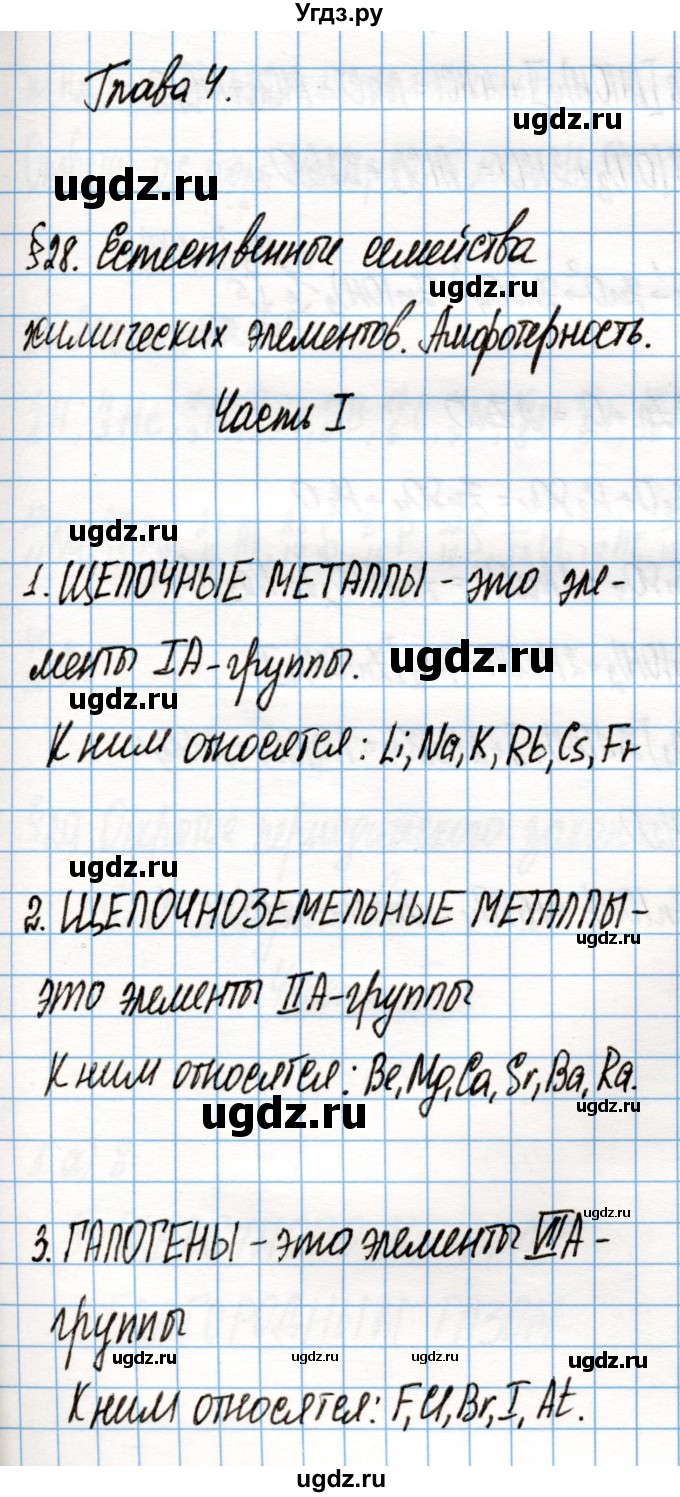 Угдз.ру
Глава 4.
ugdz.ru
ugdz.ru
§28. Естественные семейства
ugdz.ru
химических элементов. Амфотерность.
Часть I
ugdz.ru
1. ЩЕЛОЧНЫЕ МЕТАЛЛЫ - это эле-
менты IA-группы.
ugdz.ru
ugdz.ru
К ним относятся: Li, Na, K, Rb, Cs, Fr
ugdz.ru
2. ЩЕЛОЧНОЗЕМЕЛЬНЫЕ МЕТАЛЛЫ-
ugdz.ru
это элементы IIA-группы
К ним относятся: Be, Mg, Ca, Sr, Ba, Ra.
ugdz.ru
ugdz.ru
ugdz.ru
3. ГАЛОГЕНЫ - это элементы VIIA-
группы
ugdz.ru
ugdz.ru
ugdz.ru
ugdz.ru
К ним относятся: F, Cl, Br, I, At.
ugdz.ru